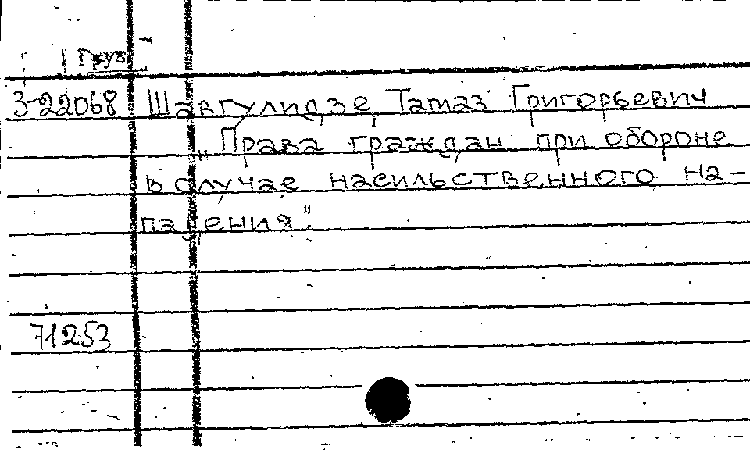 Груз
3-22068 Шавгулидзе, Тамаз Григорьевич
„Права граждан при обороне
в случае насильственного на-
падения".
71253